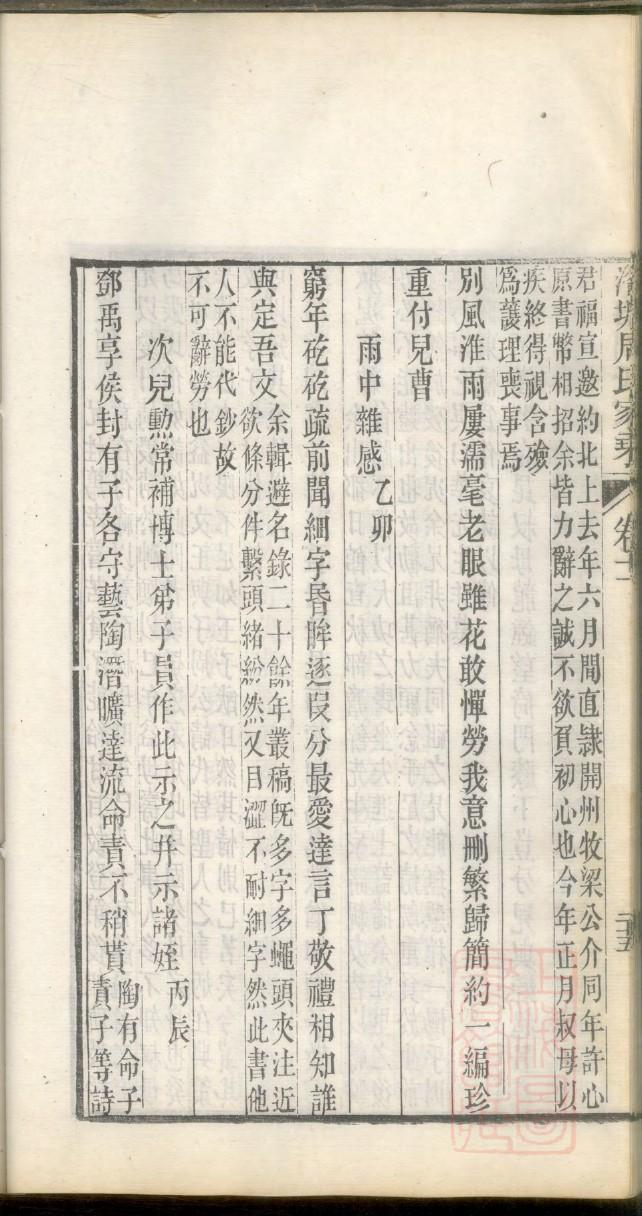 周氏家乘
卷十二
二十五
君福宣邀約北上去年六月間直隸開州牧梁公介同年許心
原書幣相招余皆力辭之誠不欲負初心也今年正月叔母以
疾終得視含殮
爲護理喪事焉
別風淮雨屢濡毫老眼雖花敢憚勞我意刪繁歸簡約一編珍
重付兒曹
雨中雜感乙卯
窮年矻矻疏前聞細字昏眸逐叚分最愛達言丁敬禮相知誰
與定吾文
余輯避名錄二十餘年叢稿旣多字多蠅頭夾注近
欲條分件繫頭緒紛然又目澀不耐細字然此書他
人不能代鈔故
不可辭勞也
次兒勲常補博士弟子員作此示之幷示諸姪丙辰
鄧禹享侯封有子各守藝陶潛曠達流命責不稍貰
陶有命子
責子等詩